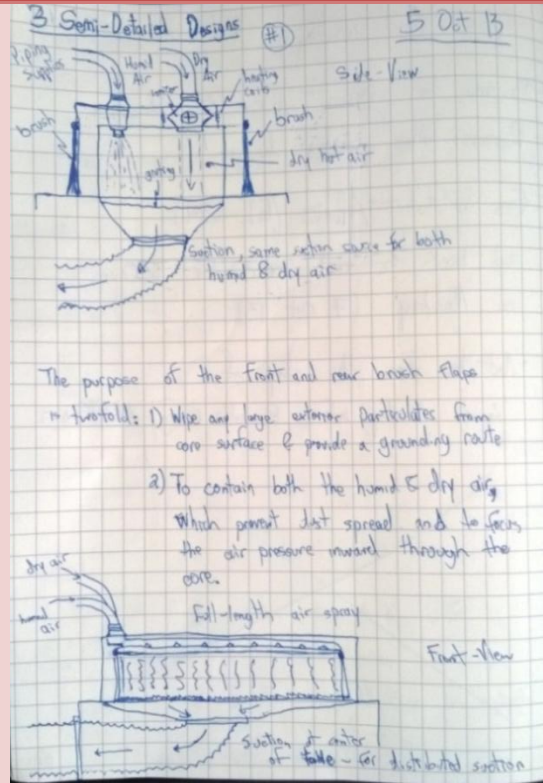 3 Semi-Detailed Designs
#1
5 Oct 13
Piping Supplies
Humid Air
Dry Air
ionizer
heating coils
Side-View
brush
brush
dry hot air
grating
Suction, same suction source for both
humid & dry air
The purpose of the front and rear brush flaps
is twofold: 1) Wipe any large exterior particulates from
core surface & provide a grounding route
2) To contain both the humid & dry air,
which prevent dust spread and to focus
the air pressure inward through the
core.
dry air
humid air
Full-length air spray
Front-View
Suction at center
of table - for distributed suction